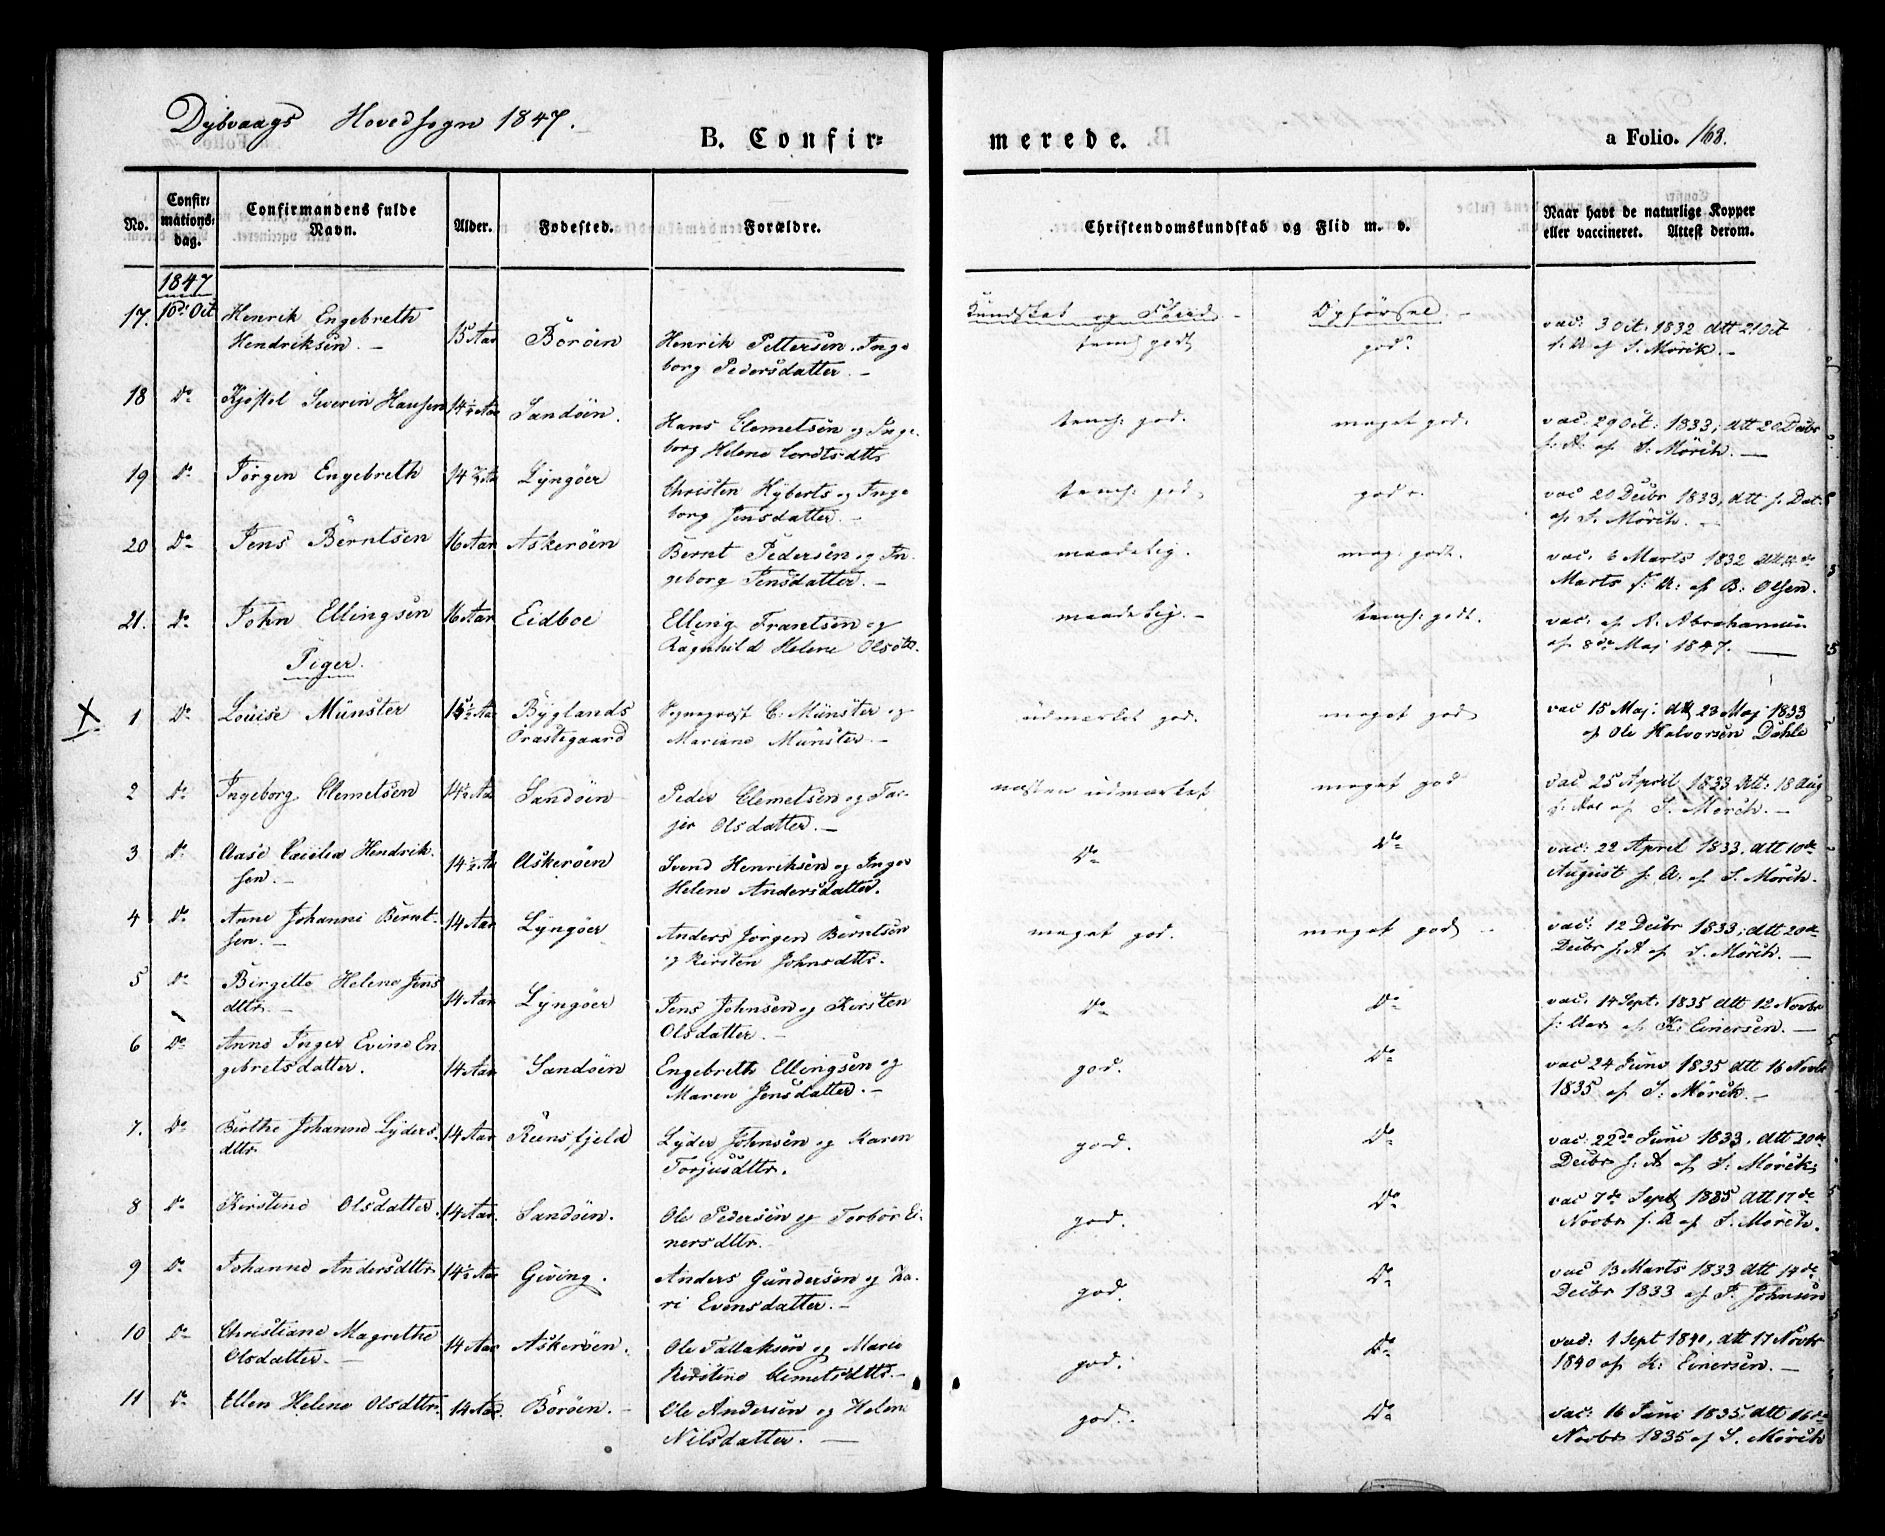 Dybvaags Hovedsogn 1847.
B. Confir=
merede.
a Folio. 163.
No.
Confir=
mations=
dag.
Confirmandens fulde
Navn.
Alder.
Fødested.
Forældre.
Christendomskundskab og Flid m. v.
Naar havt de naturlige Kopper
eller vaccineret. Attest derom.
1847
Kundskab og Flid
Opførsel.
17. 10de Oct Henrik Engebreth
Hendriksen. 15 Aar Boröen Henrik Pettersen, Inge
borg Pedersdatter. temᵐ godt god. vac: 3 Oct: 1832 att 21 Oct
s. A af S. Mörch.
18 Do Kjöstol Severin Hansen 14½ Aar Sandöen. Hans Clemetsen og Inge-
borg Helene temᵐ: god. meget god. vac. 29 Oct: 1833, att 20 Decbr
s. A. af S. Mörch.
19 Do Jørgen Engebreth 14 Aar Lyngöer Christen Hyberts og Inge
borg Jensdatter. temᵐ: god. vac 20 Decbr 1833, att s. Dat.
af S. Mörch.
20 Do Jens Berntsen 16 Aar Askeröen Bernt Pedersen og In-
geborg Jensdatter. maadelig. meg: godt. vac. 6 Marts 1832
Marts s. A: af B: Olsen.
21. Do John Ellingsen 16 Aar Eidboe Elling Frantsen og
Ragnhild Helene Olsdtt. maadelig. temᵐ: godt. vac. af N. Abrahamsen
af 8de Maj 1847.
Piger.
X 1 Do Louise Münster 15½ Aar Byglands
Præstegaard Sognepræst C. Münster og
Mariane Münster udmærket god. meget god vac 15 Maj. att 23 Maj 1833
af Ole Halvorsen Dahle
2 Do Ingeborg Clemetsen 14½ Aar Sandöen Peder Clemetsen og Tar-
jer Olsdatter. næsten udmærket meget god vac 25 April 1833 Att: 18 Aug
s: Aar af S. Mörch.
3 Do Aase Cæcilia Hendrik-
sen. 14½ Aar Askeröen Svend Henriksen og Inger
Helene Andersdatter. Do Do vac: 22 April 1833. att 10de
August s. A. af S. Mörch.
4 Do Anne Johanne Bernt-
sen. 14 Aar Lyngöer Anders Jörgen Berntsen
og Kirsten Johnsdttr. meget god. meget god vac: 12 Decbr 1833, att 20de
Decbr s. A af S. Mörch.
5 Do Birgitte Helene Jens
dttr. 14 Aar Lyngöer Jens Johnsen og Kirsten
Olsdatter. Do Do vac. 14 Sept. 1835 att 12 Novbr
s: Aar af K: Einersen.
6 Do Anne Inger Evine En-
gebretsdatter. 14 Aar Sandöen Engebreth Ellingsen og
Maren Jensdatter. god. Do vac 24 Juni 1835 att 16 Novbr
1835 af S: Mörch.
7. Do Birthe Johanne Lyders-
dttr 14 Aar Reensfjeld Lyder Johnsen og Karen
Torjusdttr. god. Do vac: 22de Juni 1833. att 20de
Decbr s: A af S: Mörch,
8 Do Kirstine Olsdatter 14 Aar. Sandöen. Ole Pedersen og Torbor Ei-
nersdttr. god. Do vac 7de Sept 1835 Att 17de
Novbr s. A af S. Mörch.
9 Do Johanne Andersdttr 14½ Aar Giving. Anders Gundersen og Ka-
ri Evensdatter. god. Do vac 13 Marts 1833 att 14de
Decbr 1833 af T. Johnsen
10 Do Christiane Magrethe
Olsdatter. 14 Aar Askeröen. Ole Tallaksen og Maria
Kirstine Clemetsdttr. god. Do vac: 1 Sept 1840, att 17 Novbr
1840 af K: Einersen.
11 Do Ellen Helene Olsdttr. 14 Aar. Boröen. Ole Andersen og Helene
Nilsdatter. god. Do vac: 16 Juni 1835, att 16de
Novbr 1835 af S. Mörch